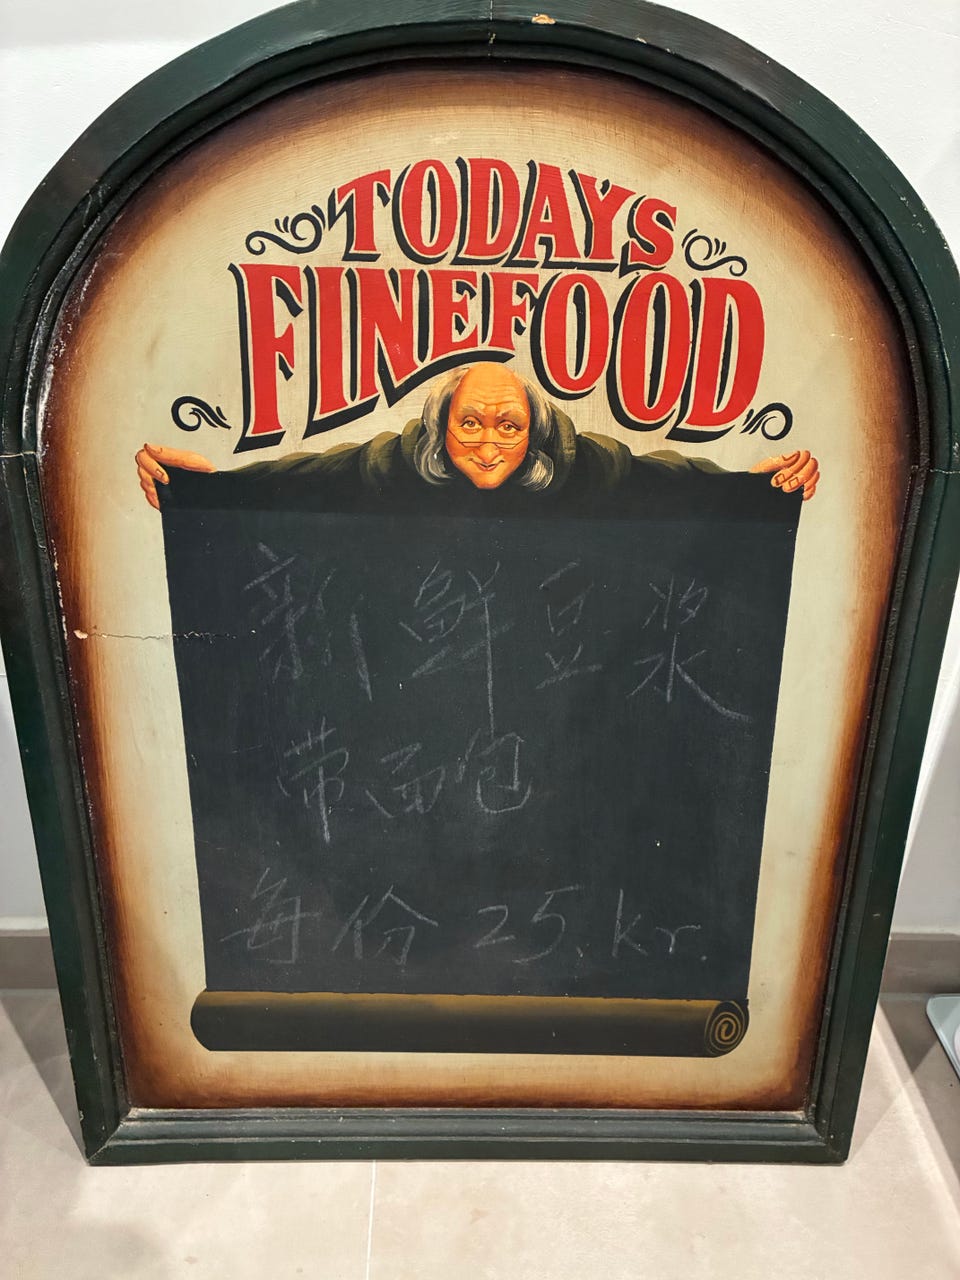 TODAYS
FINEFOOD
新鲜豆浆
带面包
每份 25. kr.